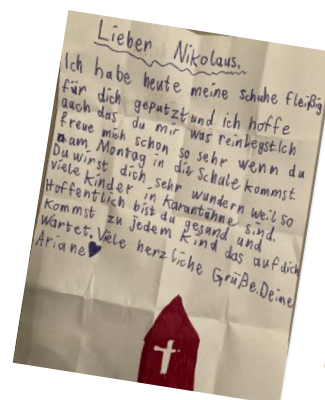 Lieber Nikolaus.
Ich habe heute meine schuhe fleißig
für dich geputzt und ich hoffe
auch das du mir was reinlegst.Ich
freue mich schon so sehr wenn du
am Montag in die Schule kommst.
Du wirst dich sehr wundern weil so
viele Kinder in Karantähne sind.
Hoffentlich bist du gesund und
kommst zu jedem Kind das auf dich
wartet. Viele herzliche Grüße.Deine
Ariane